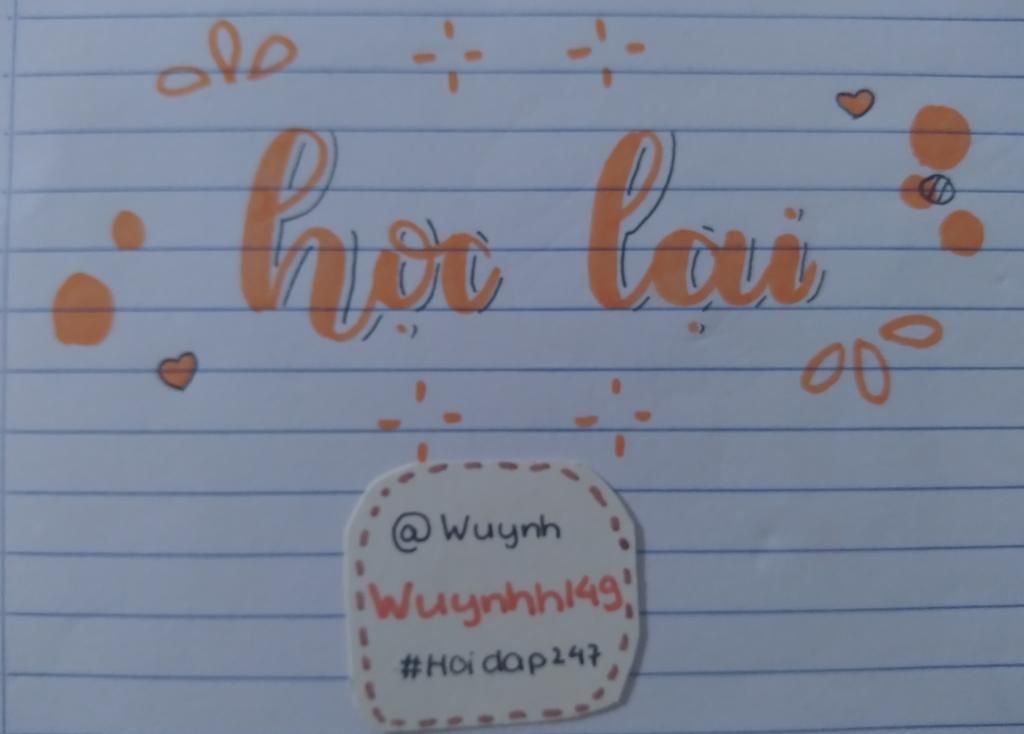 học lại
@Wuynh
Wuynhh149
#Hoidap247